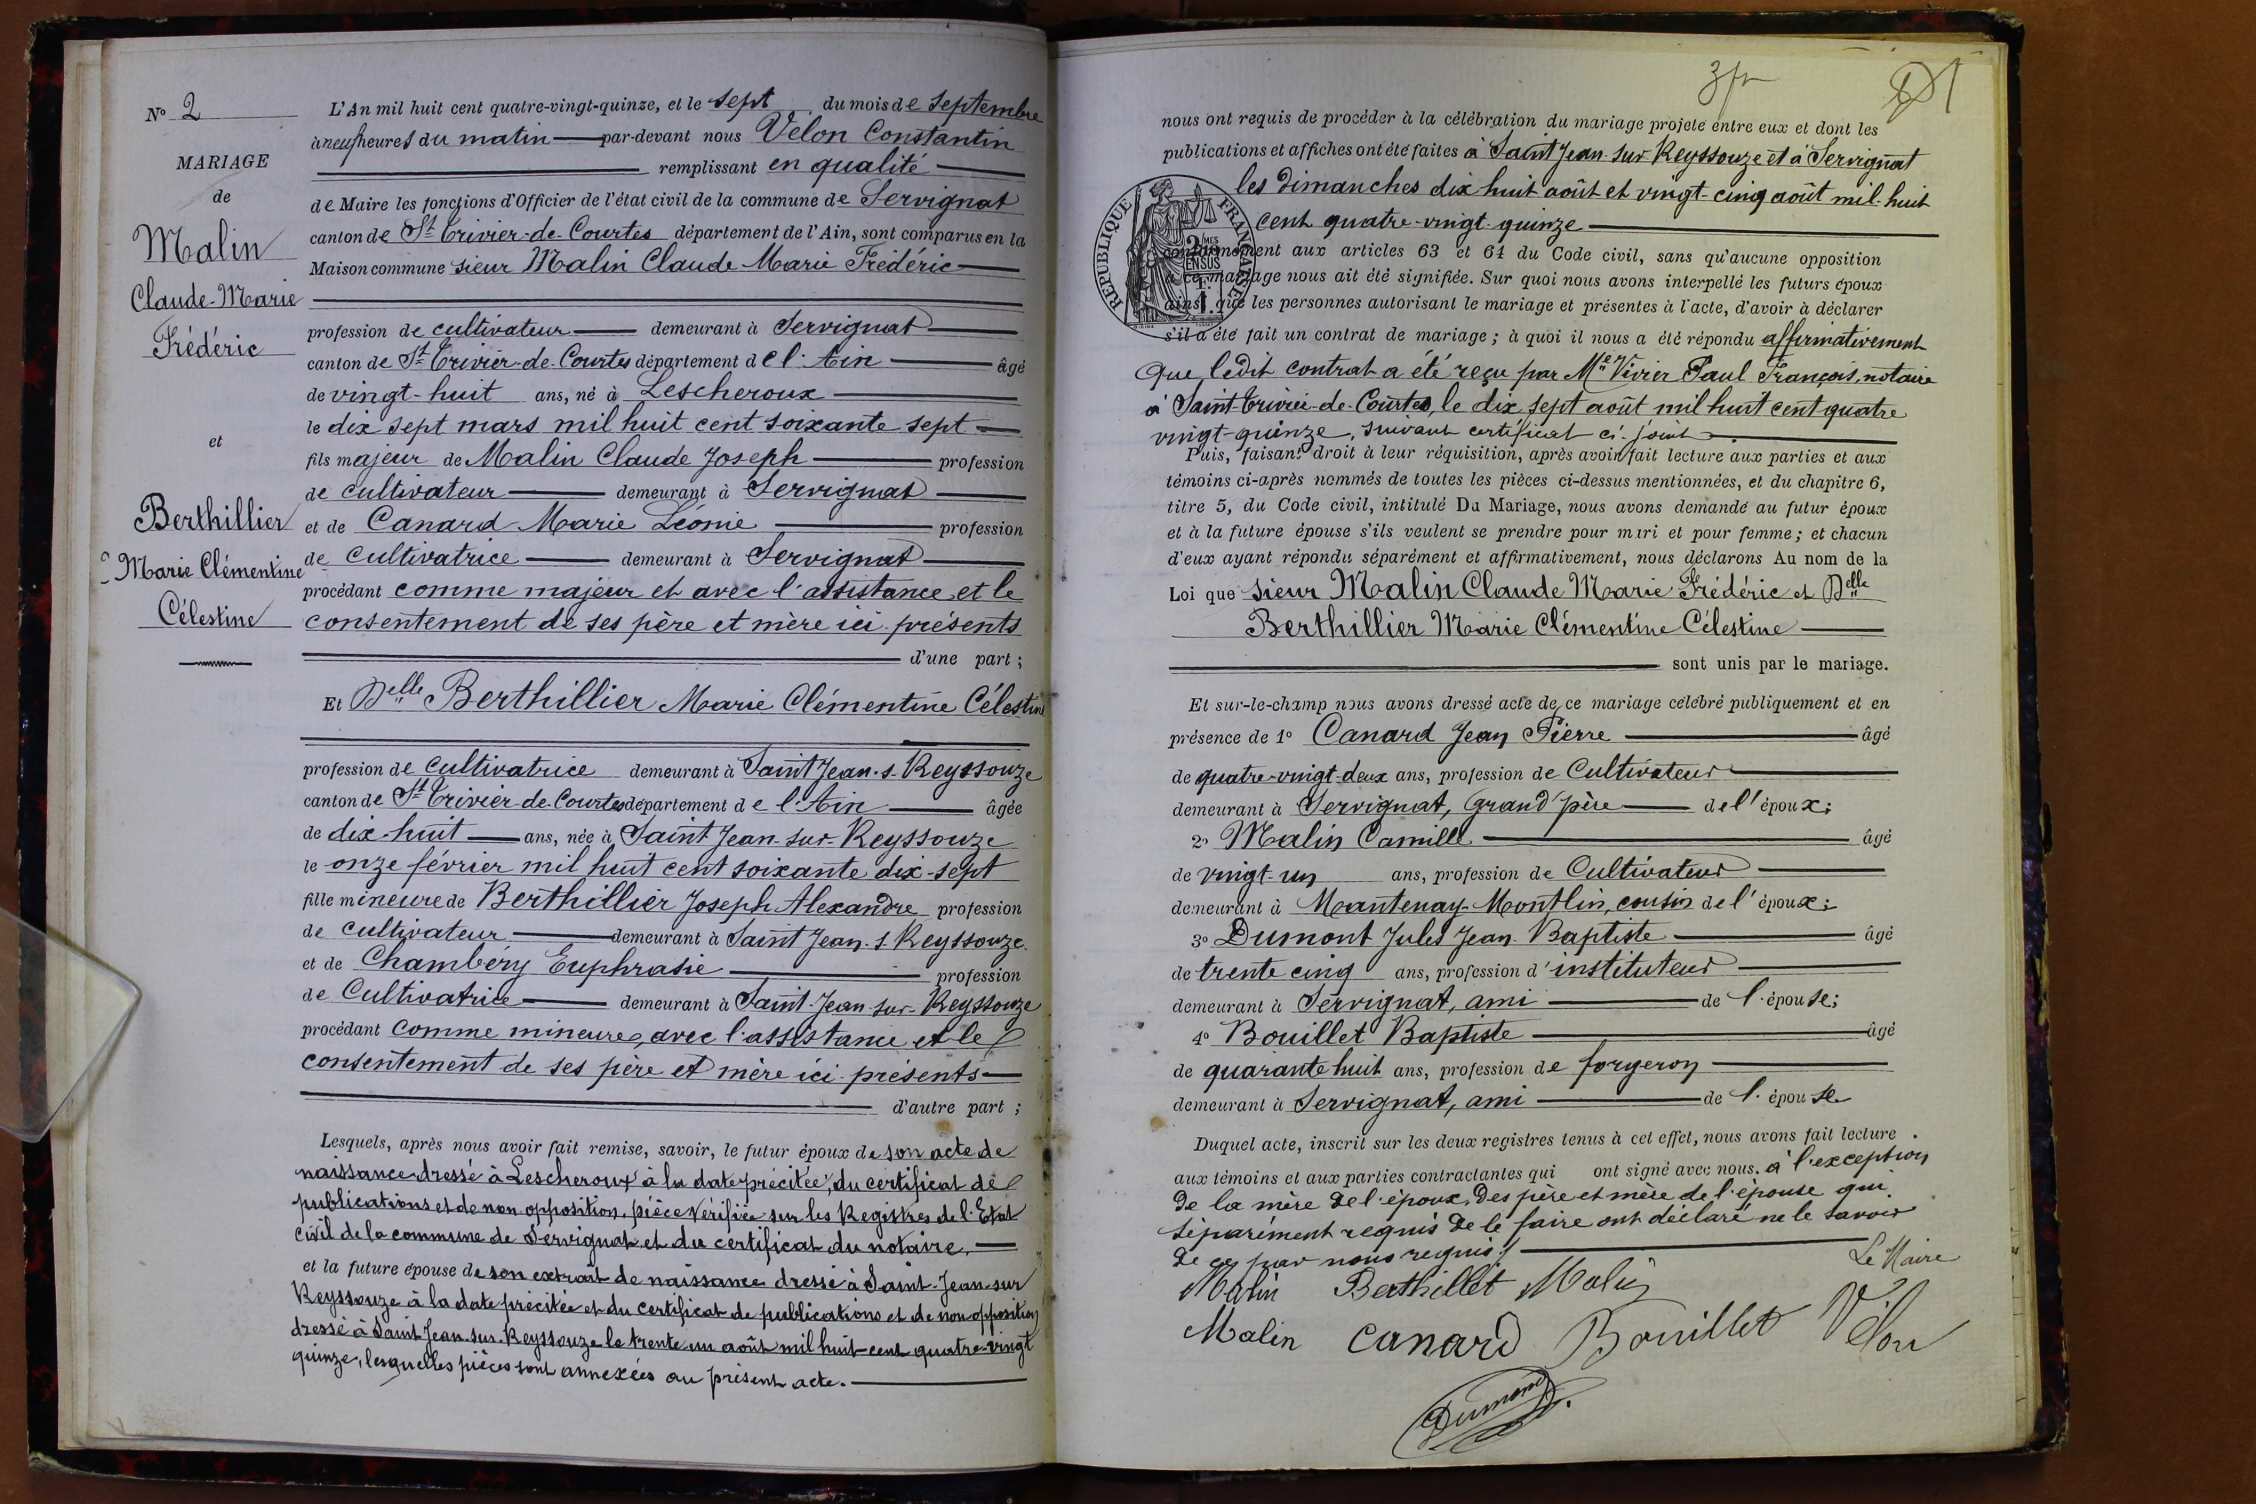 N° 2
MARIAGE
de
Malin
Claude-Marie
Frédéric
et
Berthillier
Marie Clémentine
Célestine
L'An mil huit cent quatre-vingt-quinze, et le sept du mois de septembre
à neuf heures du matin par-devant nous Vélon Constantin
remplissant en qualité
de Maire les fonctions d'Officier de l'état civil de la commune de Servignat
canton de St Trivier-de-Courtes département de l'Ain, sont comparus en la
Maison commune sieur Malin Claude Marie Frédéric
profession de cultivateur demeurant à Servignat
canton de St Trivier-de-Courtes département de l'Ain âgé
de vingt-huit ans, né à Lescheroux
le dix sept mars mil huit cent soixante sept
fils majeur de Malin Claude Joseph profession
de cultivateur demeurant à Servignat
et de Canard Marie Léonie profession
de cultivatrice demeurant à Servignat
procédant comme majeur et avec l'assistance et le
consentement de ses père et mère ici présents
d'une part ;
Et Delle Berthillier Marie Clémentine Célestine
profession de cultivatrice demeurant à Saint Jean-s-Reyssouze
canton de St Trivier-de-Courtes département de l'Ain âgée
de dix-huit ans, née à Saint Jean-sur-Reyssouze
le onze février mil huit cent soixante dix-sept
fille mineure de Berthillier Joseph Alexandre profession
de cultivateur demeurant à Saint Jean-s-Reyssouze
et de Chambéry Euphrasie profession
de Cultivatrice demeurant à Saint-Jean-sur-Reyssouze
procédant comme mineure, avec l'assistance et le
consentement de ses père et mère ici présents
d'autre part ;
Lesquels, après nous avoir fait remise, savoir, le futur époux de son acte de
naissance dressé à Lescheroux à la date précitée, du certificat de
publications et de non opposition, pièce vérifiée sur les Registres de l'Etat
civil de la commune de Servignat et du certificat du notaire.
et la future épouse de son extrait de naissance dressé à Saint-Jean-sur
Reyssouze à la date précitée et du certificat de publications et de non opposition
dressé à Saint Jean-sur-Reyssouze le trente un août mil huit cent quatre-vingt
quinze, lesquelles pièces sont annexées au présent acte.
nous ont requis de procéder à la célébration du mariage projeté entre eux et dont les
publications et affiches ont été faites à Saint Jean-sur-Reyssouze et à Servignat
les dimanches dix huit août et vingt-cinq août mil-huit
cent quatre-vingt quinze
RÉPUBLIQUE FRANÇAISE
conformément aux articles 63 et 64 du Code civil, sans qu'aucune opposition
à ce mariage nous ait été signifiée. Sur quoi nous avons interpellé les futurs époux
ainsi que les personnes autorisant le mariage et présentes à l'acte, d'avoir à déclarer
s'il a été fait un contrat de mariage ; à quoi il nous a été répondu affirmativement
que ledit contrat a été reçu par Me Vivier Paul François, notaire
à Saint-Trivier-de-Courtes, le dix sept août mil huit cent quatre
vingt-quinze, suivant certificat ci-joint.
Puis, faisant droit à leur réquisition, après avoir fait lecture aux parties et aux
témoins ci-après nommés de toutes les pièces ci-dessus mentionnées, et du chapitre 6,
titre 5, du Code civil, intitulé Du Mariage, nous avons demandé au futur époux
et à la future épouse s'ils veulent se prendre pour mari et pour femme ; et chacun
d'eux ayant répondu séparément et affirmativement, nous déclarons Au nom de la
Loi que sieur Malin Claude Marie Frédéric et Delle
Berthillier Marie Clémentine Célestine
sont unis par le mariage.
Et sur-le-champ nous avons dressé acte de ce mariage célébré publiquement et en
présence de 1° Canard Jean Pierre âgé
de quatre-vingt-deux ans, profession de Cultivateur
demeurant à Servignat, Grand'père de l'époux ;
2° Malin Camille âgé
de vingt-un ans, profession de Cultivateur
demeurant à Mantenay-Montlin, cousin de l'époux ;
3° Dumont Jules Jean-Baptiste âgé
de trente cinq ans, profession d'instituteur
demeurant à Servignat, ami de l'épouse ;
4° Bouillet Baptiste âgé
de quarante huit ans, profession de forgeron
demeurant à Servignat, ami de l'épouse
Duquel acte, inscrit sur les deux registres tenus à cet effet, nous avons fait lecture
aux témoins et aux parties contractantes qui ont signé avec nous. à l'exception
de la mère de l'époux, des père et mère de l'épouse qui
séparément requis de le faire ont déclaré ne le savoir
de ce par nous requis.
Le Maire
Malin Berthillet Malin
Malin Canard Bouillet Vélon
Dumont